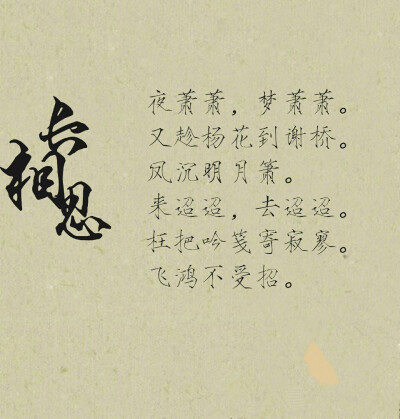 长相思
夜萧萧，梦萧萧。
又趁杨花到谢桥。
凤沉明月箫。
来迢迢，去迢迢。
枉把吟笺寄寂寥。
飞鸿不受招。